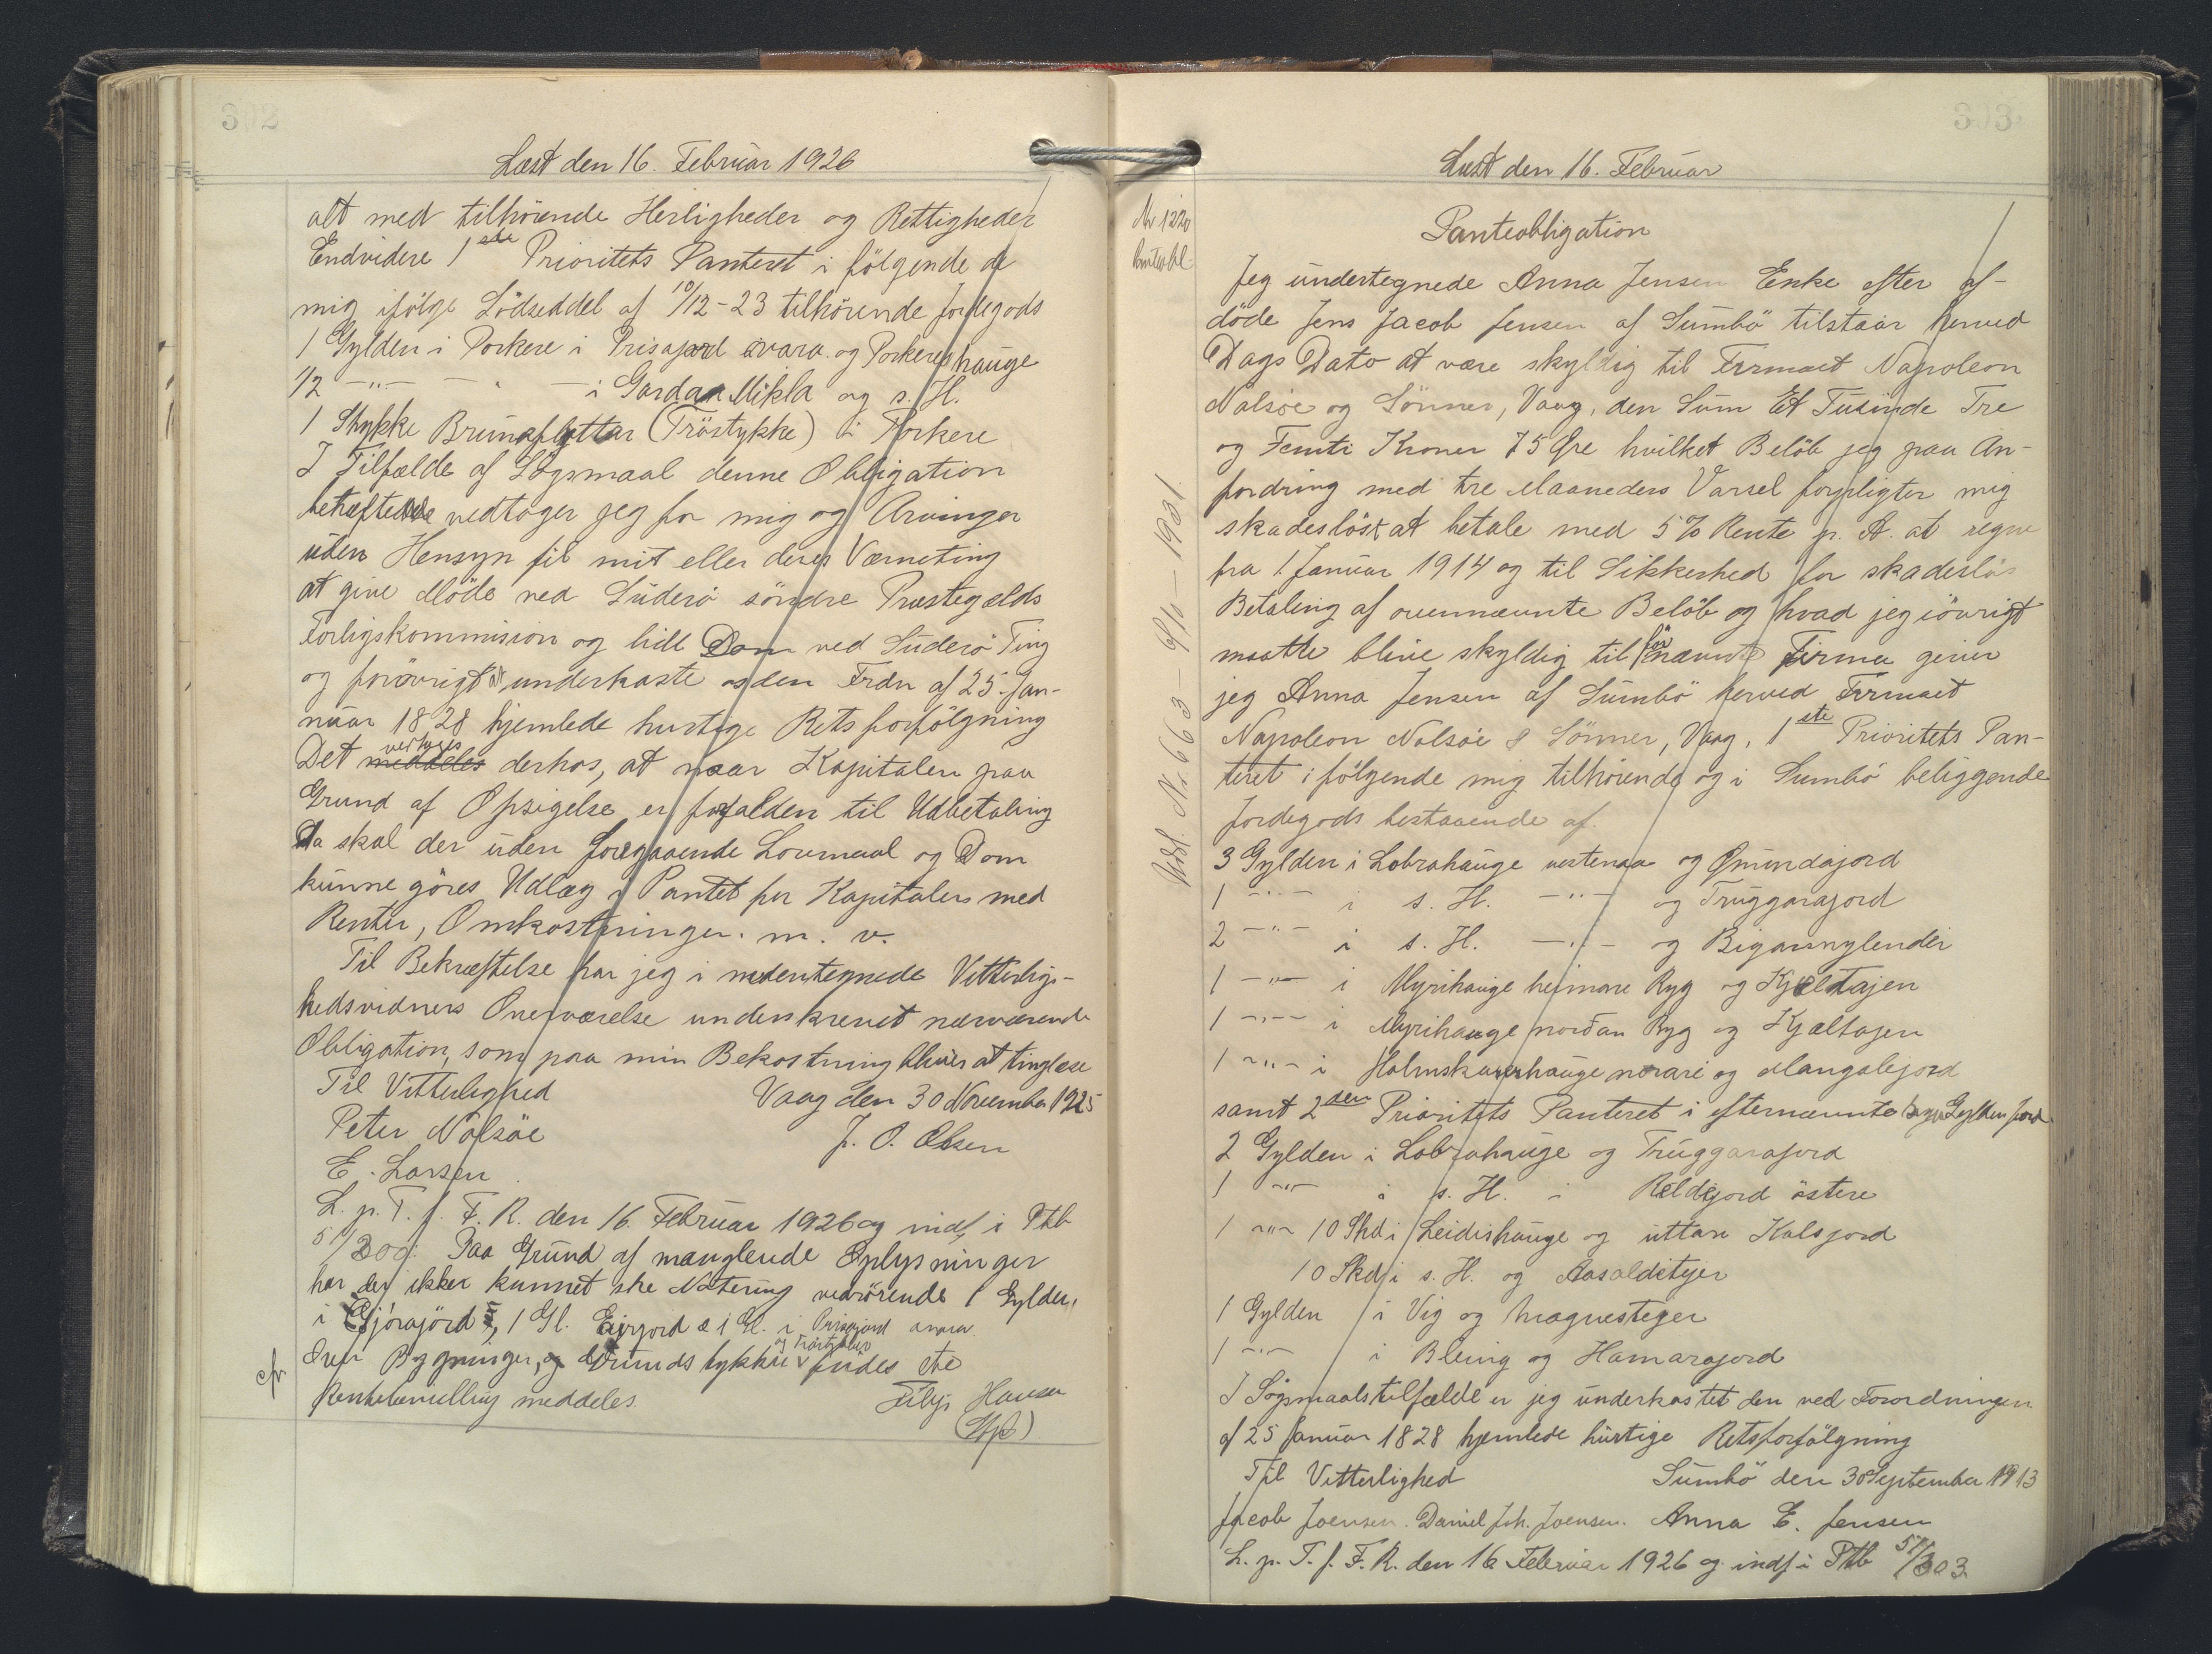 302
Læst den 16. Februar 1926
alt med tilhörende Herligheder og Rettigheder
Endvidere 1ste Prioritets Panteret i fölgende de
mig ifölge Lödseddel af 10/12-23 tilhörende Jordegods
1 Gylden i Porkere i Prisajord avara og Porkereshauge
1/2 -"- - " - i Gardar Mikla og s. H.
1 Stykke Brunaflöttar (Tröstykke) i Porkere
I Tilfælde af Sögsmaal denne Obligation
betræffende vedtager jeg for mig og Arvinger
uden Hensyn til mit eller deres Værneting
at give Möde ved Suderö söndre Præstegjelds
Forligskommision og lide Dom ved Suderö Ting
og forövrigt at underkaste os den Frdn af 25. Jan-
nuar 1828 hjemlede hurtige Rets forfölgning
Det meddeles vedtages derhos, at naar Kapitalen paa
Grund af Opsigelse er forfalden til Udbetaling
da skal der uden foregaaende Lovmaal og Dom
kunne göres Udlæg i Pantet for Kapitalen med
Renter, Omkostninger. m. v.
Til Bekræftelse har jeg i nedentegnede Vitterlig-
hedsvidners Overværelse underskrevet nærværende
Obligation, som paa min Bekostning bliver at tinglæse
Til Vitterlighed Vaag den 30 November 1925
Peter Nolsöe J. O. Olsen
E. Larsen
L. p. T. f. F. R. den 16. Februar 1926 og indf. i Ptb
51/300. Paa Grund af manglende Oplysninger
har der ikke kunnet ske Notering vedrörende 1 Gylden
i 1 Gl. Eirjord & 1 Gl. i Prisajord avara.
Over Bygninger, og Brunds tykke og Tröstykker findes ite
cfr
Rentebevilling meddeles. Filip Hansen
303
Læst den 16. Februar
Nr 1220
Panteobl
Panteobligation
Jeg undertegnede Anna Jensen Enke efter af-
döde Jens Jacob Jensen af Sumbö tilstaar herved
Dags Dato at være skyldig til Firmaet Napoleon
Nolsöe og Sönner, Vaag, den Sum Et Tusinde Tre
og Femti Kroner 75 Öre hvilket Belöb jeg paa An-
fordring med tre Maaneders Varsel forpligter mig
skadeslöst at betale med 5% Rente p. A. at regne
fra 1 Januar 1914 og til Sikkerhed for skadeslös
Betaling af ovennævnte Belöb og hvad jeg iövrigt
maatte blive skyldig til förnævnte Firma giver
jeg Anna Jensen af Sumbö herved Firmaet
Napoleon Nolsöe & Sönner, Vaag, 1ste Prioritets Pan-
teret i fölgende mig tilhörende og i Sumbö beliggende
Jordegods bestaaende af.
Udsl. Nr. 663 - 6/10 - 1931.
3 Gylden i Lobrahauge vestenaa og Ömundajord
1 -"- i s. H. -"- og Truggarajord
2 -"- i s. H. -"- og Bigarmylender
1 -"- i Myrihauge heimare Ryg og Kjæltajen
1 -"- i Myrihauge nordan Ryg og Kjæltajen
1 -"- i Holmskararhauge norari og Mangalejord
samt 2den Prioritets Panteret i efternævnte syv Gylden Jord
2 Gylden i Lobrahauge og Truggarajord
1 -"- i s. H. i Reldejord östere
1 -"- 10 Skd i Leidishauge og uttan Kalsjord
10 Skd i s. H. og Aasaldstejer
1 Gylden i Vig og Mragnesteger
1 -"- i Bleing og Hamarajord
I Sögsmaalstilfælde er jeg underkastet den ved Forordningen
af 25 Januar 1828 hjemlede hurtige Retsforfölgning
Til Vitterlighed Sumbö den 30 September 1913
Jacob Joensen. Daniel Joh. Joensen. Anna E. Jensen
L. p. T. f. F. R. den 16 Februar 1926 og indf i Ptb 51/303.